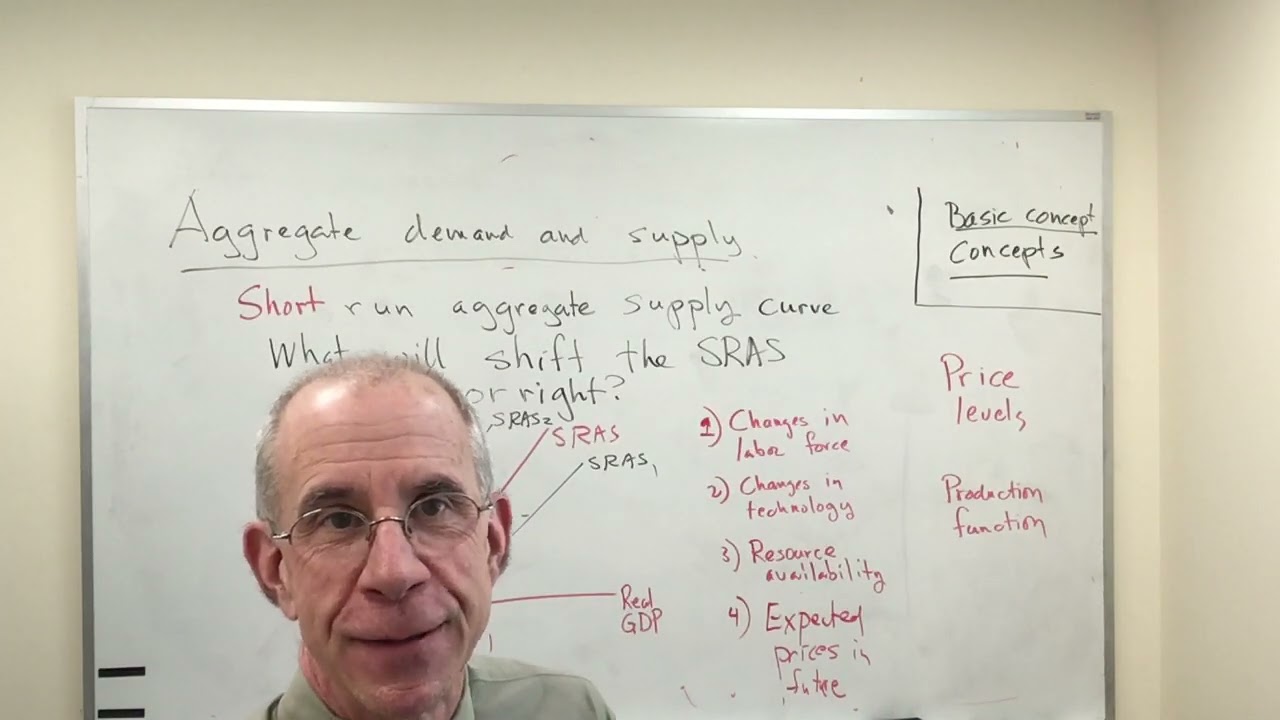 Aggregate demand and supply
Short run aggregate supply curve
What will shift the SRAS
or right?
SRAS2
SRAS
SRAS1
Real
GDP
1) Changes in
labor force
2) Changes in
technology
3) Resource
availability
4) Expected
prices in
future
Basic concept
Concepts
Price
levels
Production
function